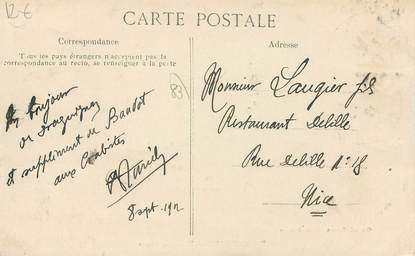 CARTE POSTALE
Correspondance
Tous les pays étrangers n'acceptent pas la
correspondance au recto, se renseigner à la poste
Adresse
bonjour
de Draguignan
et supplément de Bandol
aux
8 Sept. 190
83
Monsieur Laugier fils
Restaurant Delille
Rue Delille N° 18
Nice